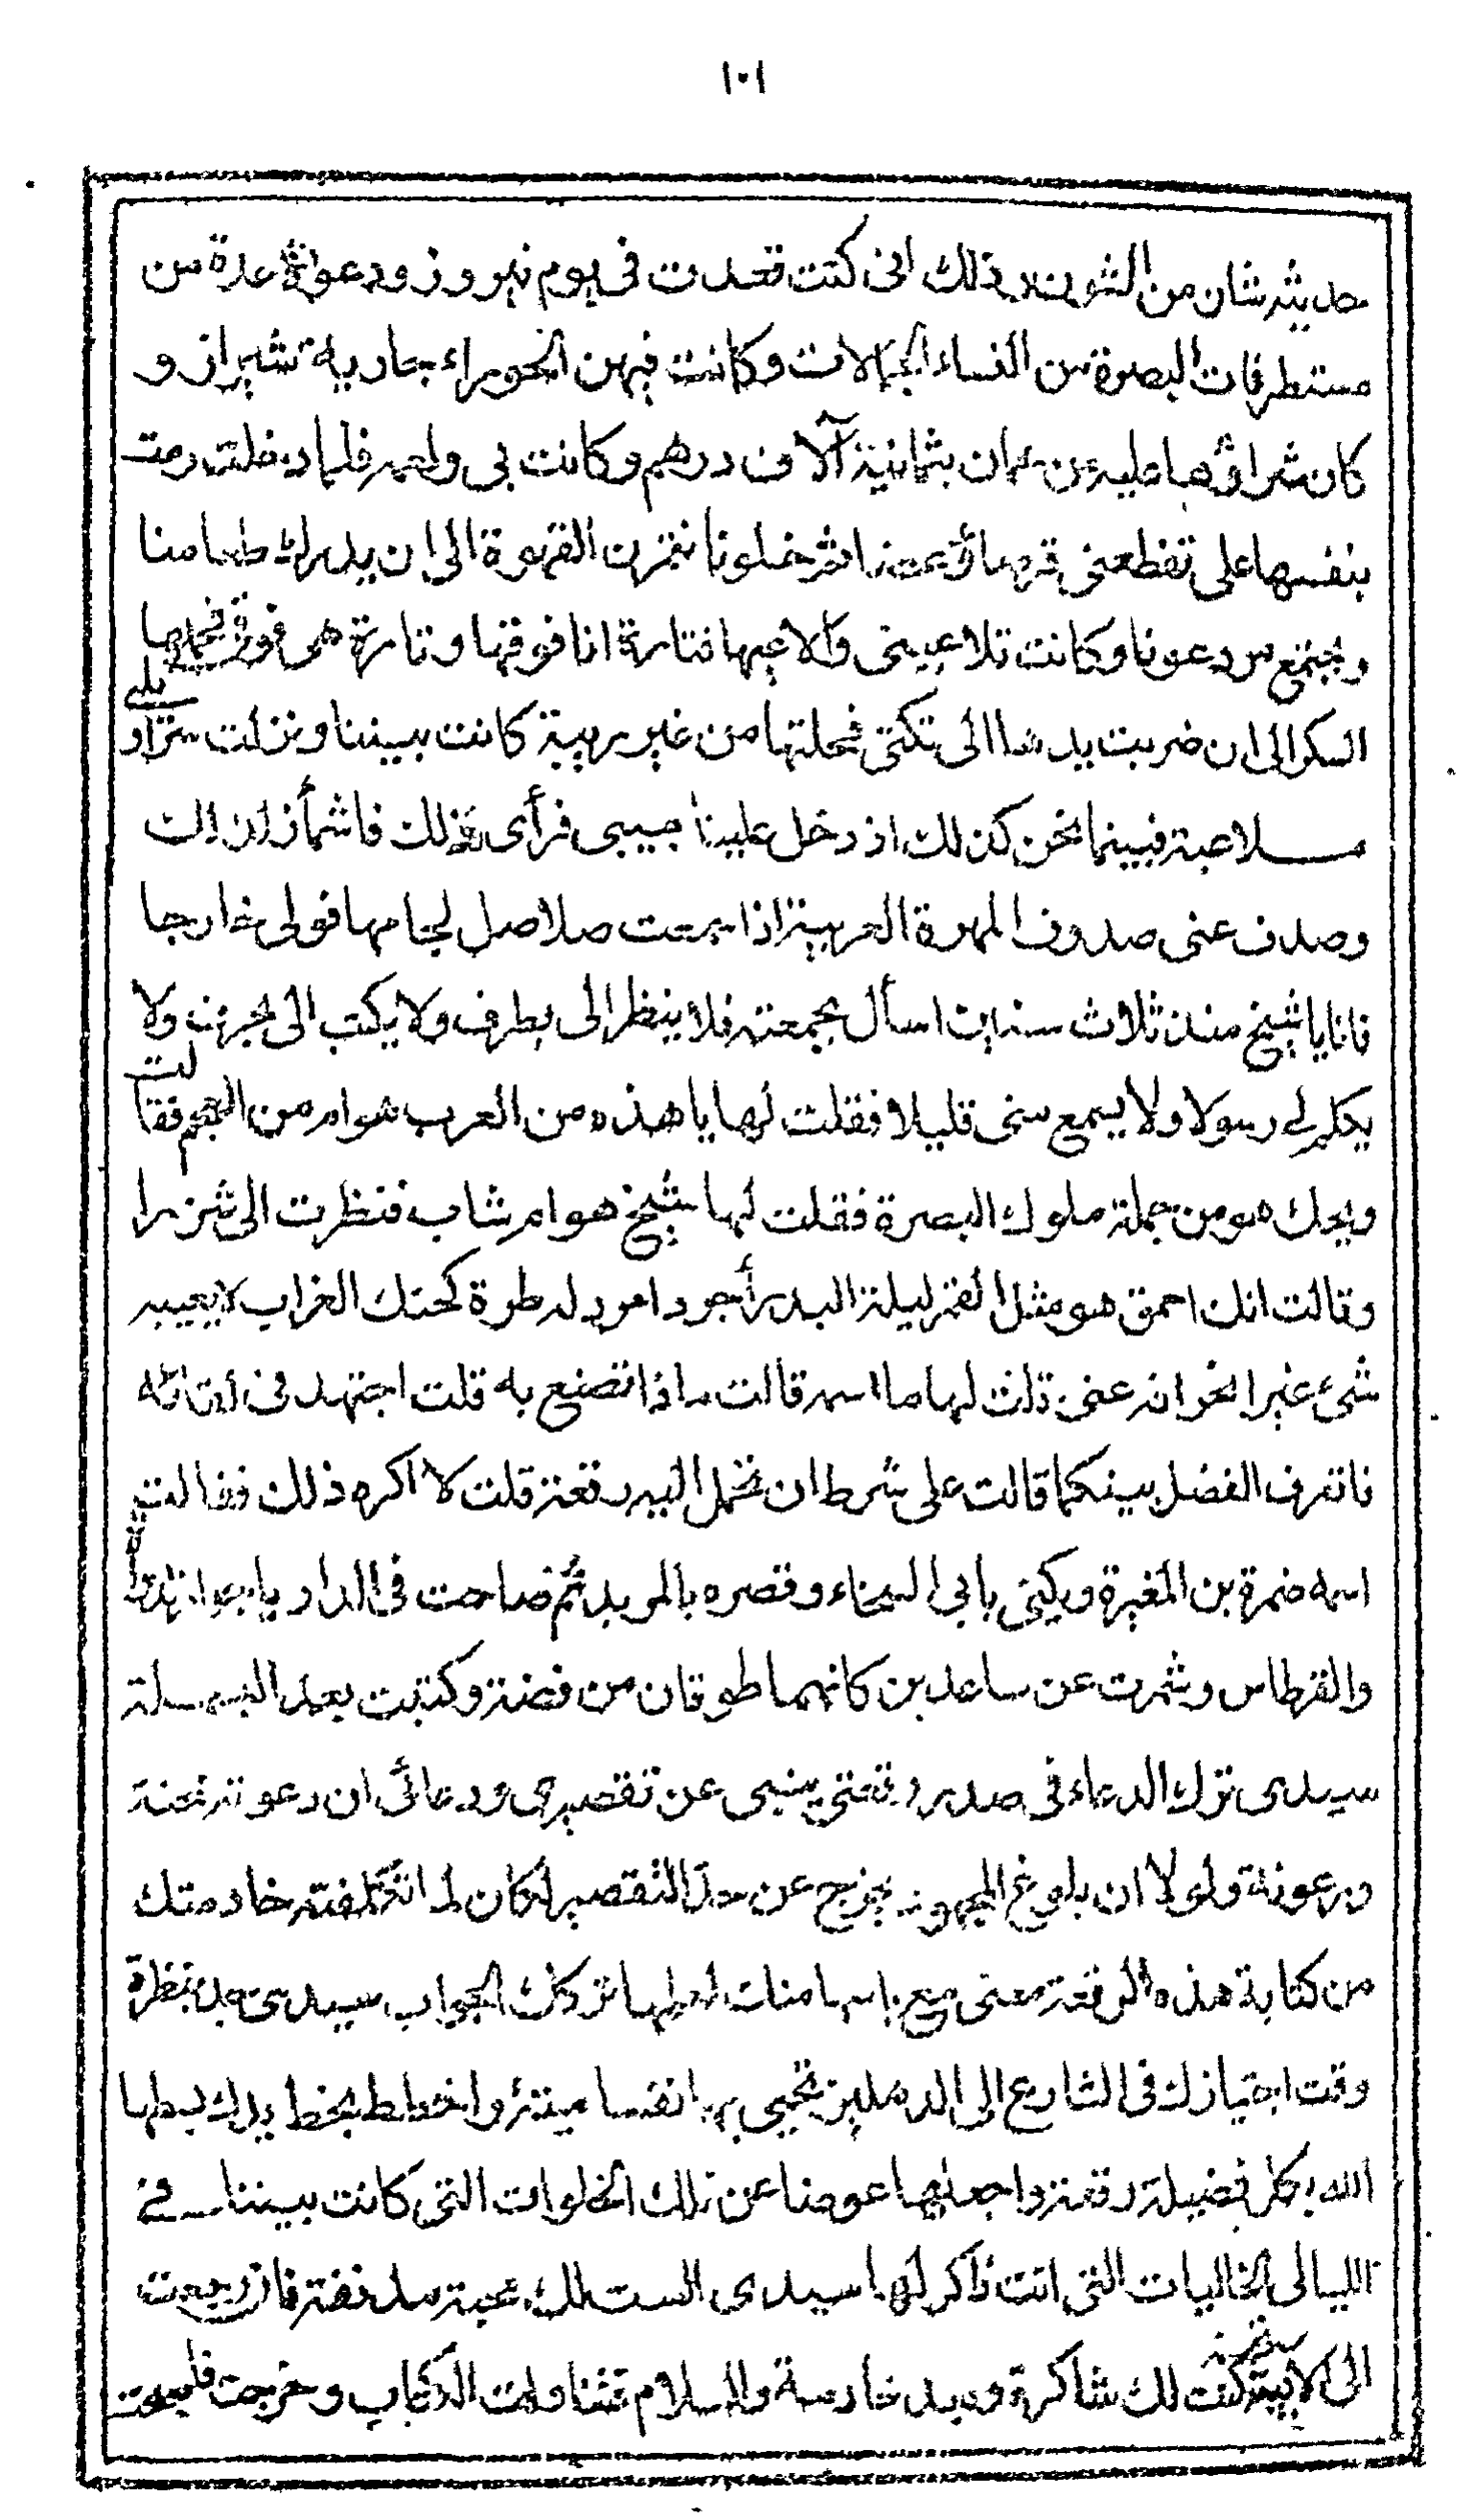 ١٠١
حديثه شان من الشون وذلك انى كنت قعدت فى يوم نيروز ودعوة عدة من
مستطرفات البصرة من النساء الجمالات وكانت فيهن الحوراء جارية شيراز و
كان شراؤها عليه من عمان بثمانية آلاف درهم وكانت بى ولعه فلما دخلت رمت
بنفسها على تقطعنى قرصا ثم خلونا نمزن القهوة الى ان يدرك طعامنا
ويجتمع من دعونا وكانت تلاعبنى وألاعبها فتارة انا فوقها وتارة هى فوقى فحملها
السكر الى ان ضربت يدها الى تكتى فحلتها من غير ريبة كانت بيننا ونزلت سراويلى
ملاعبة فبينما نحن كذلك اذ دخل علينا حبيبى فرأى ذلك فاشمأز لذلك
وصدف عنى صدوف المهرة العربية اذا سمعت صلاصل لجامها فولى خارجا
فانا يا شيخ منذ ثلاث سنين اسأل بجمعته فلا ينظر الى بطرف ولا يكتب الى بحرف ولا
يكلم لى رسولا ولا يسمع منى قليلا فقلت لها يا هذه من العرب هو ام من العجم فقالت
ويحك هو من جملة ملوك البصرة فقلت لها شيخ هو ام شاب فنظرت الى شزرا
وقالت انك احمق هو مثل القمر ليلة البدر أجرد امرد له طرة كحنك الغراب لا يعيبه
شىء غير انحرافه عنى قلت لها ما اسمه قالت ماذا تصنع به قلت اجتهد فى لقائه
فاتعرف الفضل بينكما قالت على شرط ان تحمل اليه رقعة قلت لا اكره ذلك فقالت
اسمه ضمرة بن المغيرة ويكنى بابى السخاء وقصره بالمربد ثم صاحت فى الدار يا جوار الدواة
والقرطاس وشمرت عن ساعدين كانهما طوقان من فضة وكتبت بعد البسملة
سيدى ترك الدعاء فى صدر رقعتى ينبى عن تقصيرى ودعائى ان دعوته هجنة
ورعونة ولولا ان بلوغ المجهود يخرج عن حد التقصير لكان لما تكلفته خادمتك
من كتابة هذه الرقعة معنى مع يأسها منك لعلمها تركك الجواب سيدى جد بنظرة
وقت اجتيازك فى الشارع الى الدهليز تحيى بها نفسا ميتة واخطط بخط يدك بسطها
الله بكل فضيلة رقعة واجعلها عوضا عن تلك الخلوات التى كانت بيننا فى
الليالى الخاليات التى انت ذاكر لها سيدى الست لك محبة مدنفة فان رجعت
الى الاجابة كنت لك شاكرة ولك خادمة والسلام فتناولت الكتاب وخرجت فلما اصبحت